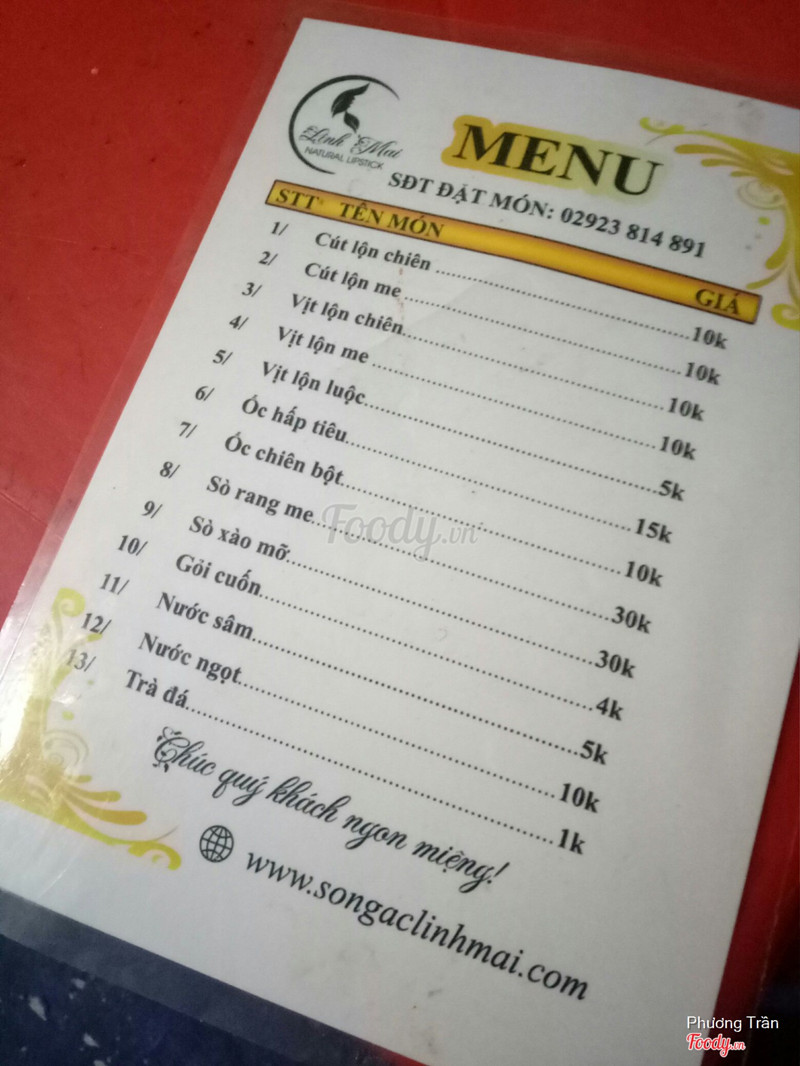 Linh Mai
NATURAL LIPSTICK
MENU
SĐT ĐẶT MÓN: 02923 814 891
STT TÊN MÓN GIÁ
1/ Cút lộn chiên 10k
2/ Cút lộn me 10k
3/ Vịt lộn chiên 10k
4/ Vịt lộn me 10k
5/ Vịt lộn luộc 5k
6/ Ốc hấp tiêu 15k
7/ Ốc chiên bột 10k
8/ Sò rang me 30k
9/ Sò xào mỡ 30k
10/ Gỏi cuốn 4k
11/ Nước sâm 5k
12/ Nước ngọt 10k
13/ Trà đá 1k
Chúc quý khách ngon miệng!
www.songaclinhmai.com
Foody.vn
Phương Trần
Foody.vn